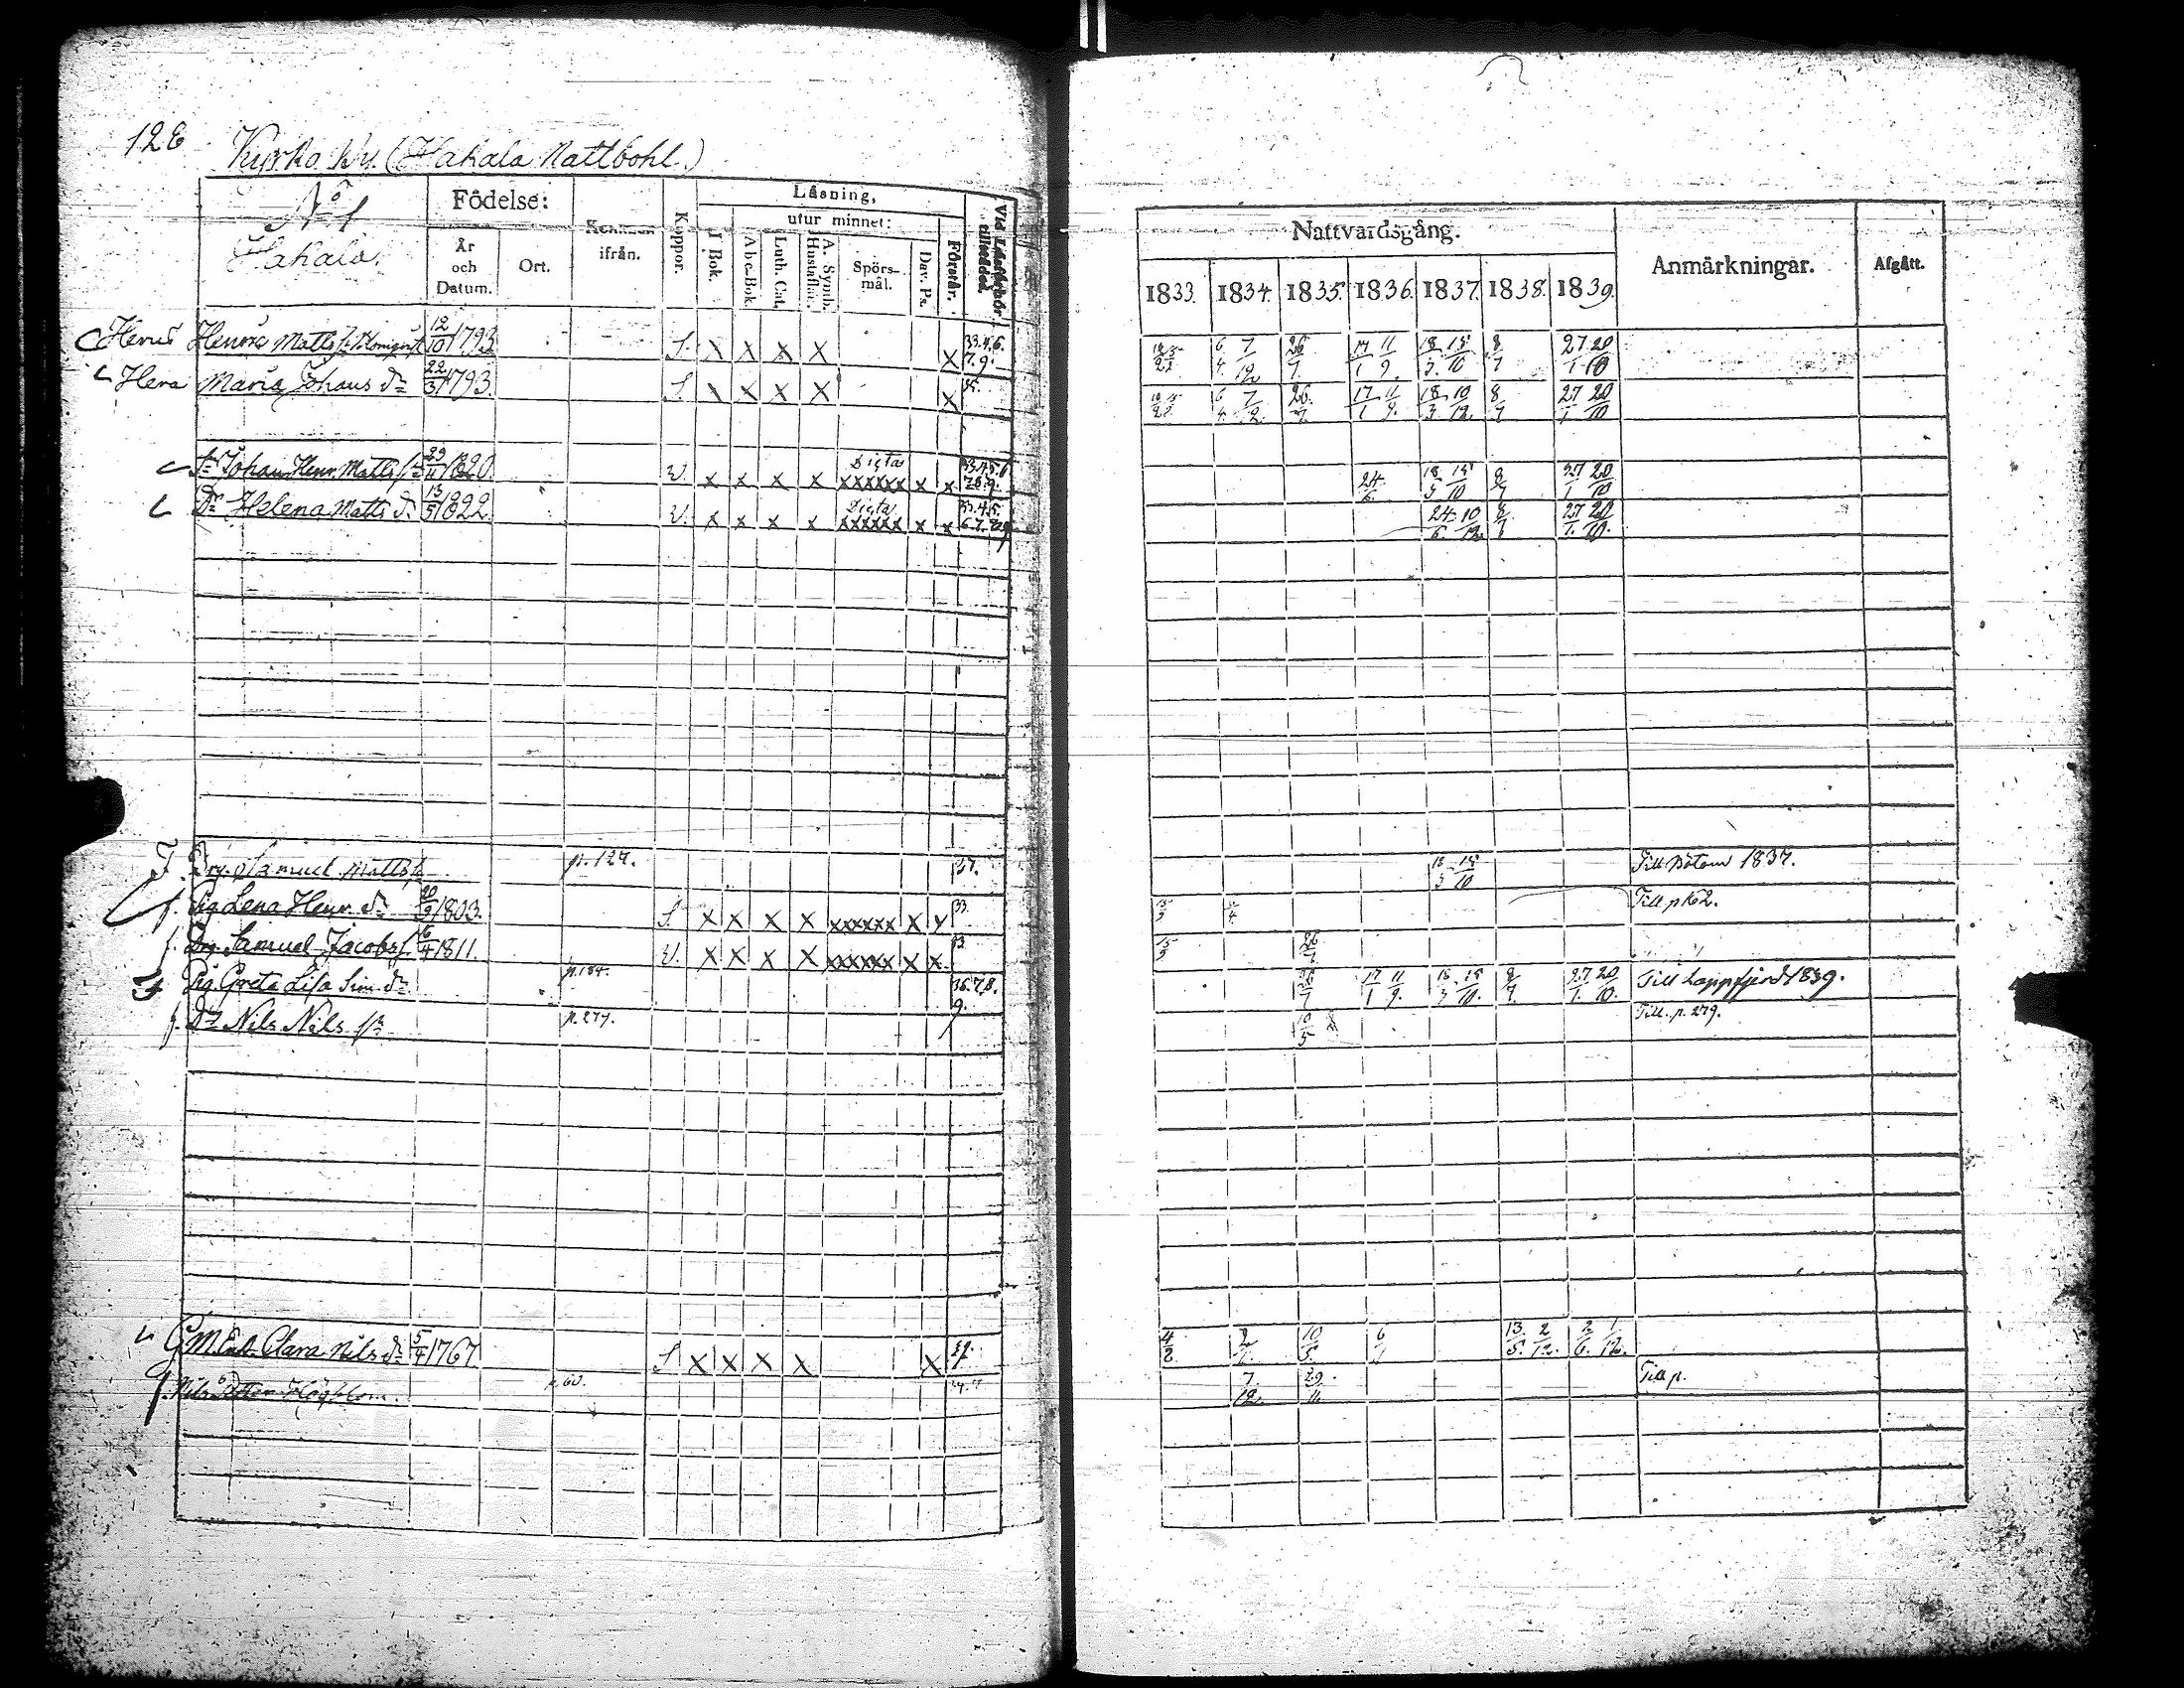 128
Kyrko by. (Hahala Nattbohl.)
No 1
Hahala.
Födelse:
År och Datum.
Ort.
Kommen ifrån.
Koppor.
Läsning,
I Bok.
utur minnet:
Abc-Bok.
Luth. Cat.
A. Symb. Hustaflar.
Spörs-mål.
Dav. Ps.
Förstår.
Vid Läseförhör tillstädes.
Henric Matts 12/10 1793 S. X X X X X 33.4.6. 7.9.
Maria Johans dr 22/3 1793. S. X X X X X 35.
Sn Johan Henr. Matts sn 29/11 1820. V. x x x x Digta xxxxxx x x
Dr Helena Matts dr 13/5 1822. V. x x x x Digta xxxxxx x x 33.4.5.
Drg. Samuel Matts s. p. 127. 37.
f. Pig. Lena Henr. dr 1803. S. X X X X xxxxxx X X 33.
f. Drg. Samuel Jacobs s. 6/4 1811. V. X X X X xxxxxx X X. 33
Pig. Greta Lisa Sim. dr p. 184. 36.7.8. 9.
f. Dr Nils Nils sn p. 277.
G.M. Enk. Clara Nils dr 5/4 1767 S X X X X X
f. Nils Petter Högblom. p. 60.
Nattvardsgång.
1833. 1834. 1835. 1836. 1837. 1838. 1839.
Anmärkningar.
Afgått.
6/4 7/12 26/7. 17/1 11/9 18/3. 15/10 8/7 27/1 20/10
6/4. 7/12. 26./7. 17/1 11/9. 18/3 10/12. 8/7 27/1 20/10
24/6. 18/3 15/10 8/7 27/1 20/10
24/6. 10/12. 8/7 27/1. 20/10.
18/3 15/10 Till Bötom 1837.
15/3 Till p 162.
15/3 26/7
26/7 17/1 11/9. 18/3 15/10. 8/7. 27/1. 20/10. Till Lappfjerd 1839.
10/5 Till. p. 279.
4/8. 10/5. 13/5. 2/12. 2/6. 1/12.
7/12. 29./11. Till p.